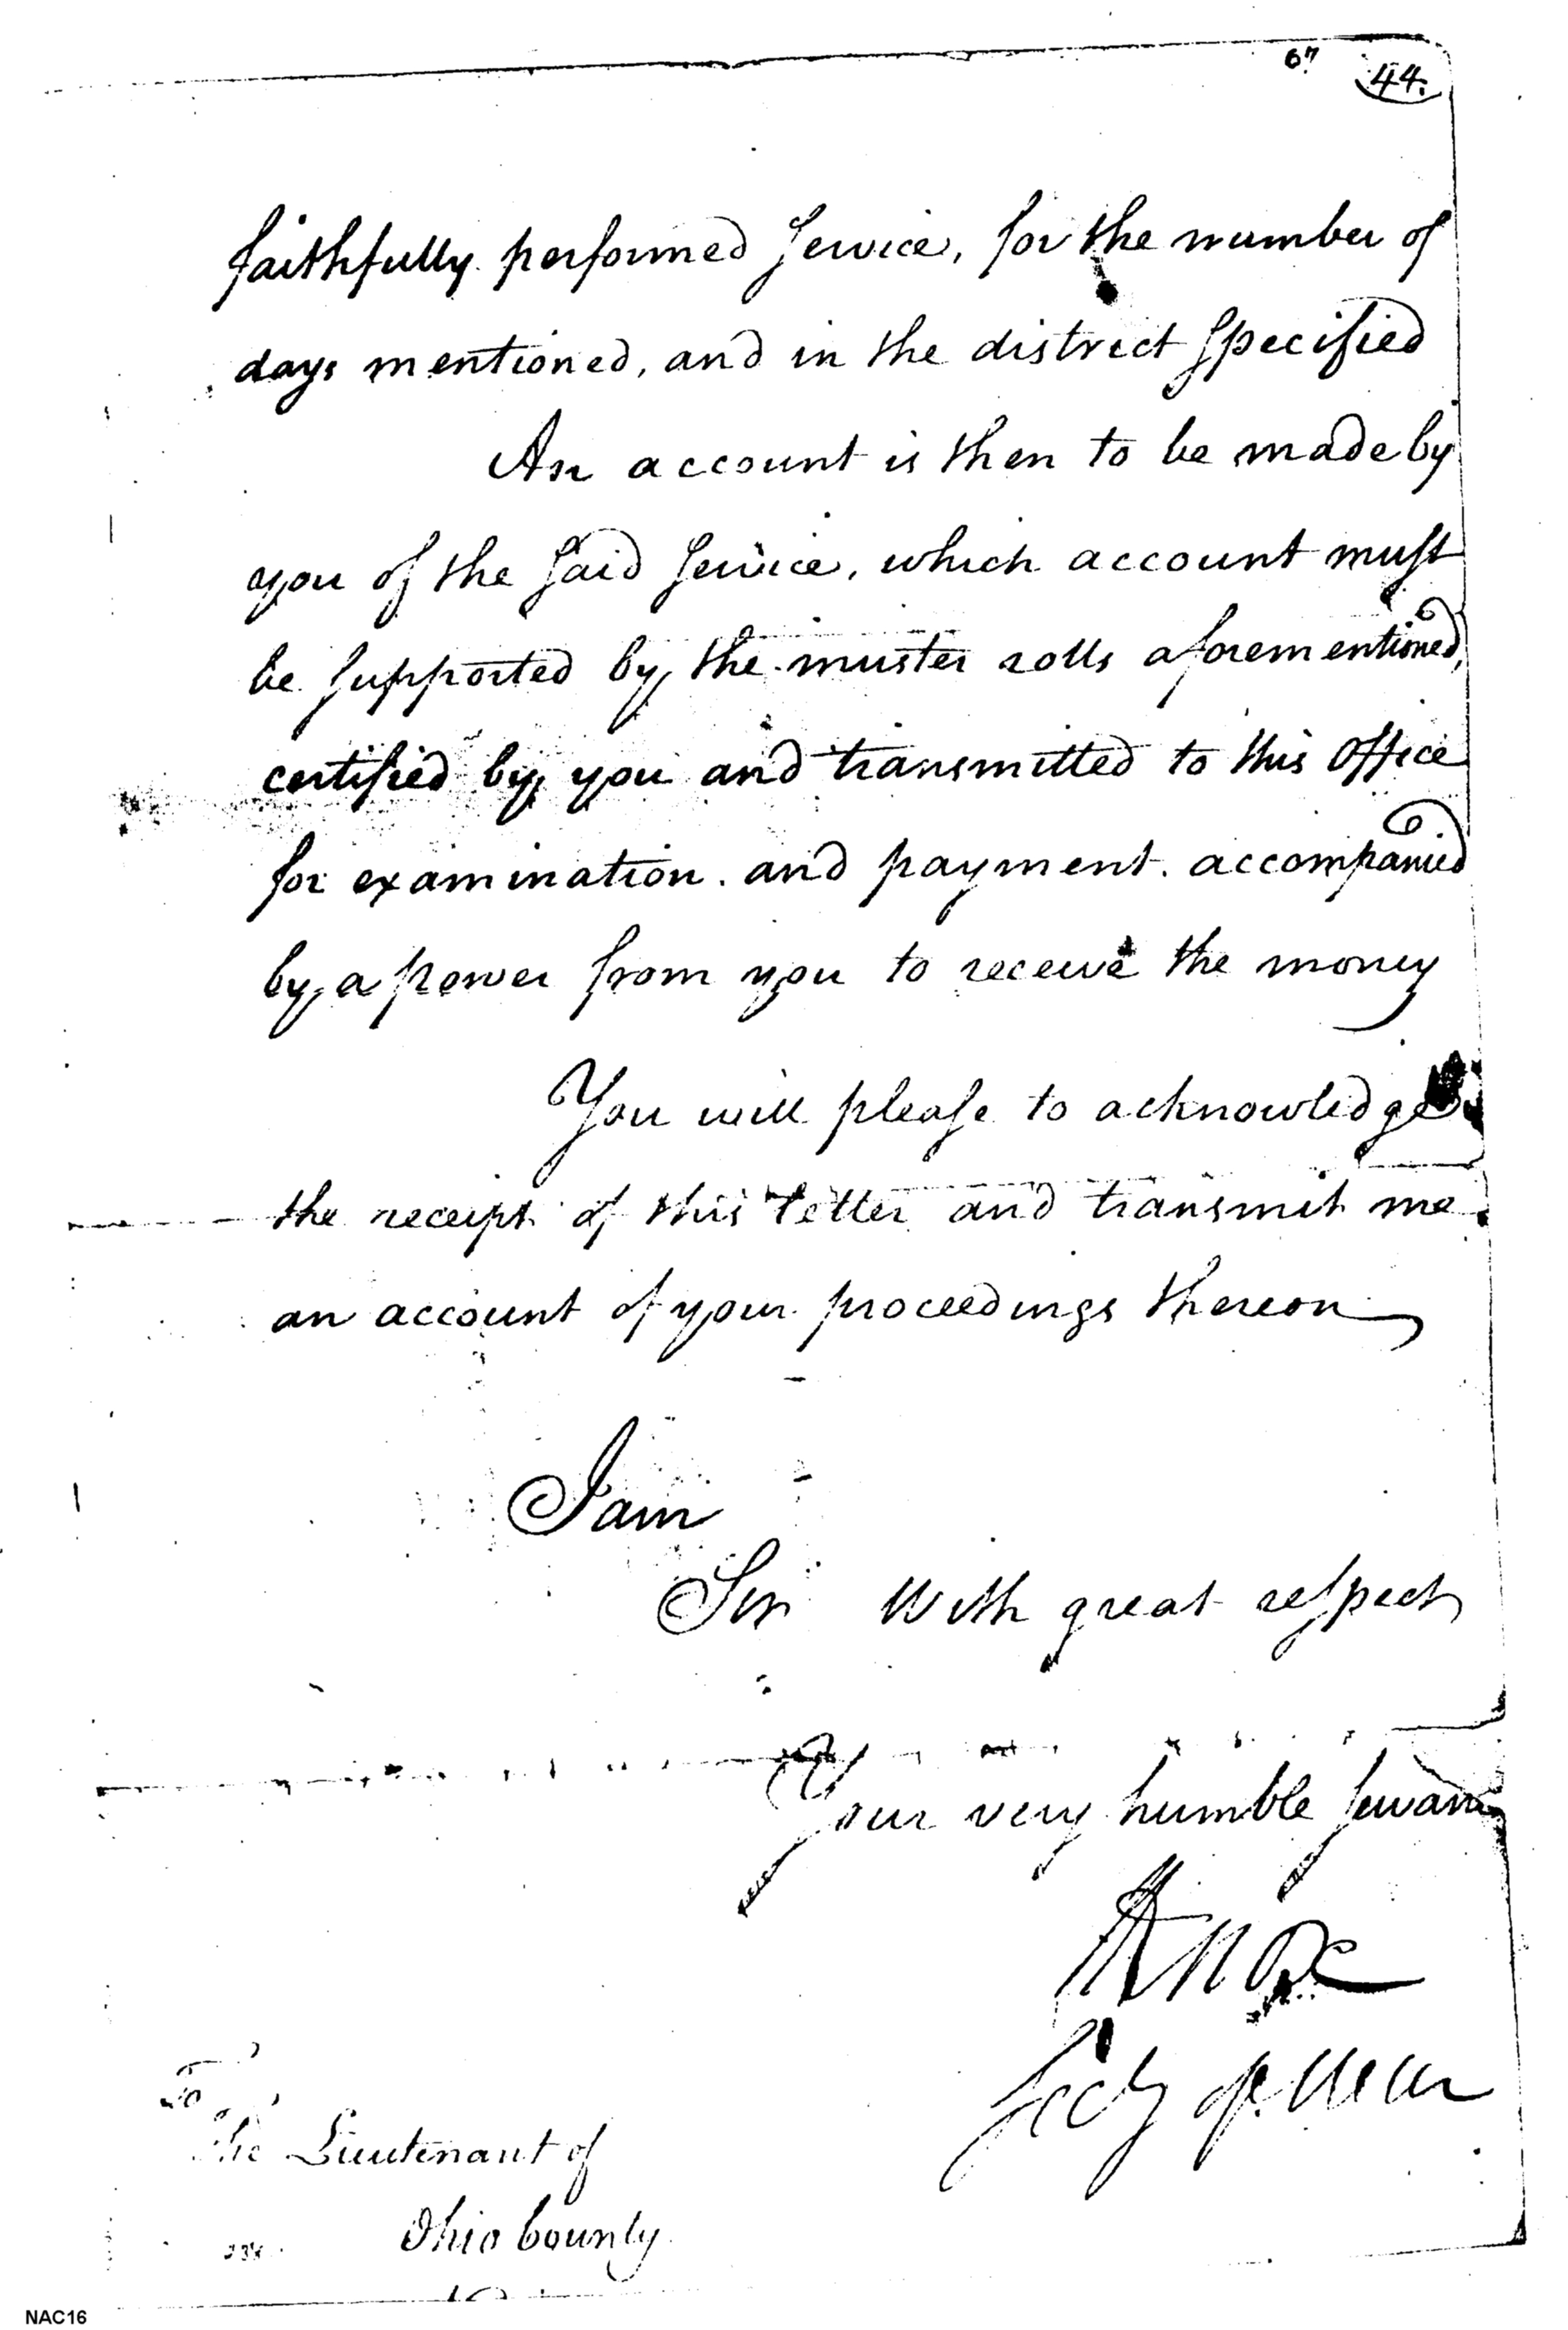 67 44.
faithfully performed service, for the number of
days mentioned, and in the district specified
An account is then to be made by
you of the said service, which account must
be supported by the muster rolls aforementioned,
certified by you and transmitted to this office
for examination. and payment. accompanied
by a power from you to receive the money
You will please to acknowledge
the receipt of this letter and transmit me
an account of your proceedings thereon
I am
Sir with great respect
Your very humble servant
HKnox
Secy of War
To
The Lieutenant of
Ohio County
NAC16